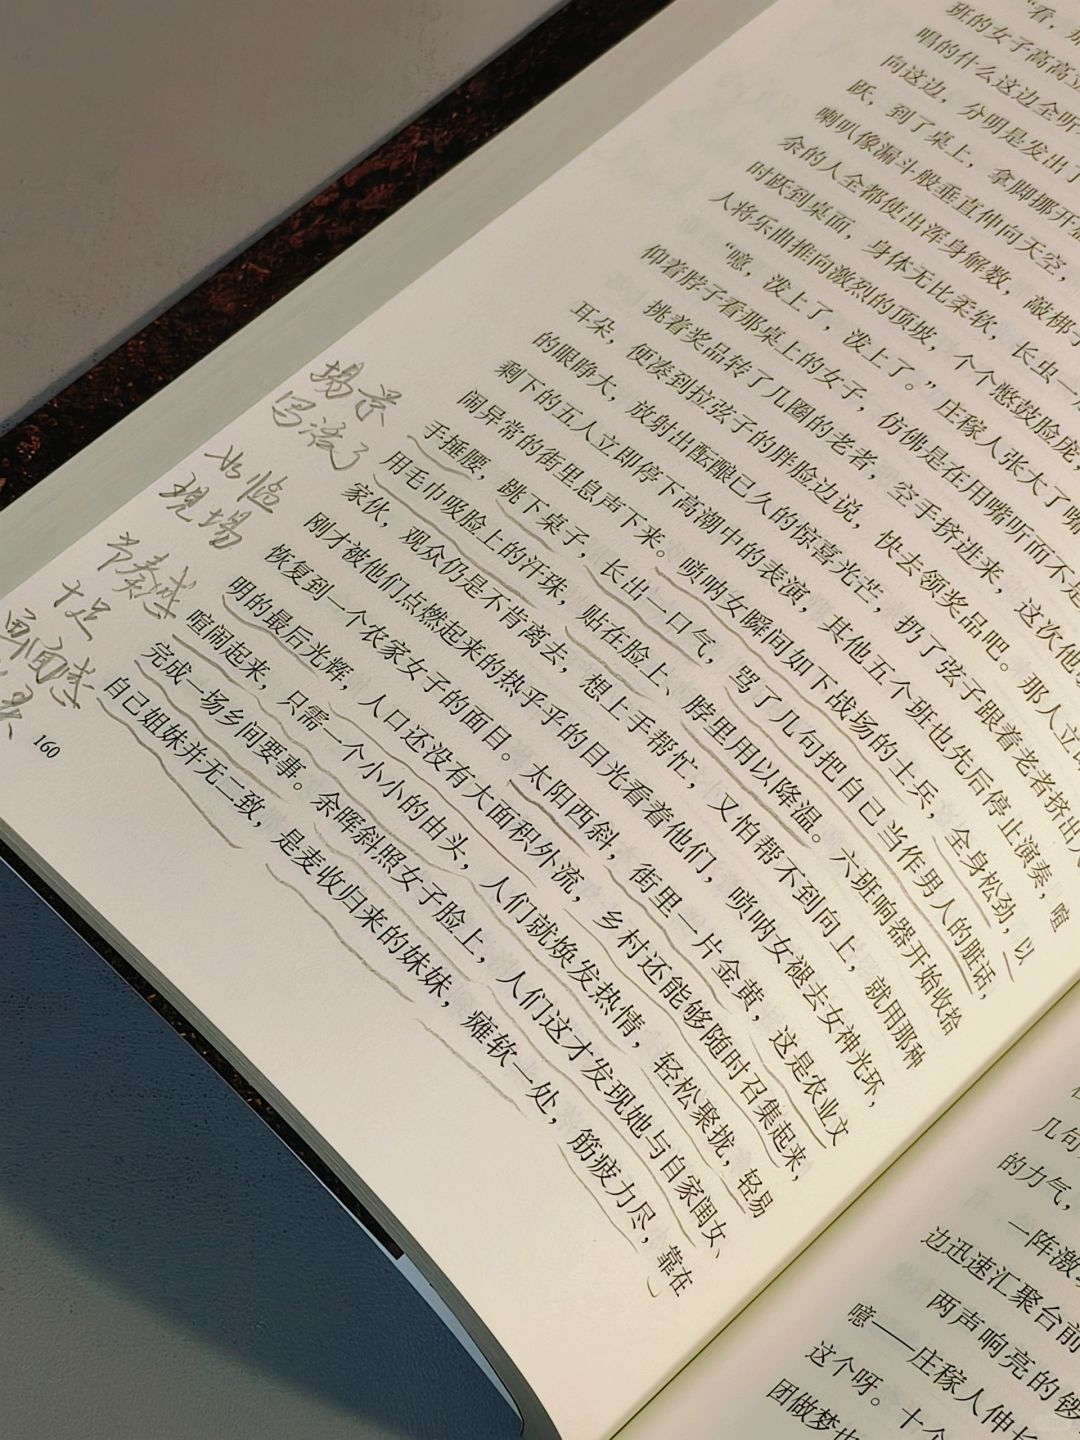 “看，那
班的女子高高立
唱的什么这边全听
向这边，分明是发出了
跃，到了桌上，拿脚挪开盘
喇叭像漏斗般垂直伸向天空，
余的人全都使出浑身解数，敲梆子
时跃到桌面，身体无比柔软，长虫一
人将乐曲推向激烈的顶坡，个个憋鼓脸庞，
“噫，泼上了，泼上了。”庄稼人张大了嘴
仰着脖子看那桌上的女子，仿佛是在用嘴听而不是
挑着奖品转了几圈的老者，空手挤进来，这次他
耳朵，便凑到拉弦子的胖脸边说，快去领奖品吧。那人立
的眼睁大，放射出酝酿已久的惊喜光芒，扔了弦子跟着老者挤出人
剩下的五人立即停下高潮中的表演，其他五个班也先后停止演奏，喧
闹异常的街里息声下来。唢呐女瞬间如下战场的士兵，全身松劲，以
手捶腰，跳下桌子，长出一口气，骂了几句把自己当作男人的脏话，
用毛巾吸脸上的汗珠，贴在脸上、脖里用以降温。六班响器开始收拾
家伙，观众仍是不肯离去，想上手帮忙，又怕帮不到向上，就用那种
刚才被他们点燃起来的热乎乎的目光看着他们，唢呐女褪去女神光环，
恢复到一个农家女子的面目。太阳西斜，街里一片金黄，这是农业文
明的最后光辉，人口还没有大面积外流，乡村还能够随时召集起来，
喧闹起来，只需一个小小的由头，人们就焕发热情，轻松聚拢，轻易
完成一场乡间要事。余晖斜照女子脸上，人们这才发现她与自家闺女、
自己姐妹并无二致，是麦收归来的妹妹，瘫软一处，筋疲力尽，靠在
160
場景
写活了
如临
現場
节奏感
十足
画面感
几句
的力气，
一阵激
边迅速汇聚台前
两声响亮的锣
噫——庄稼人伸长
这个呀。十个
团做梦也